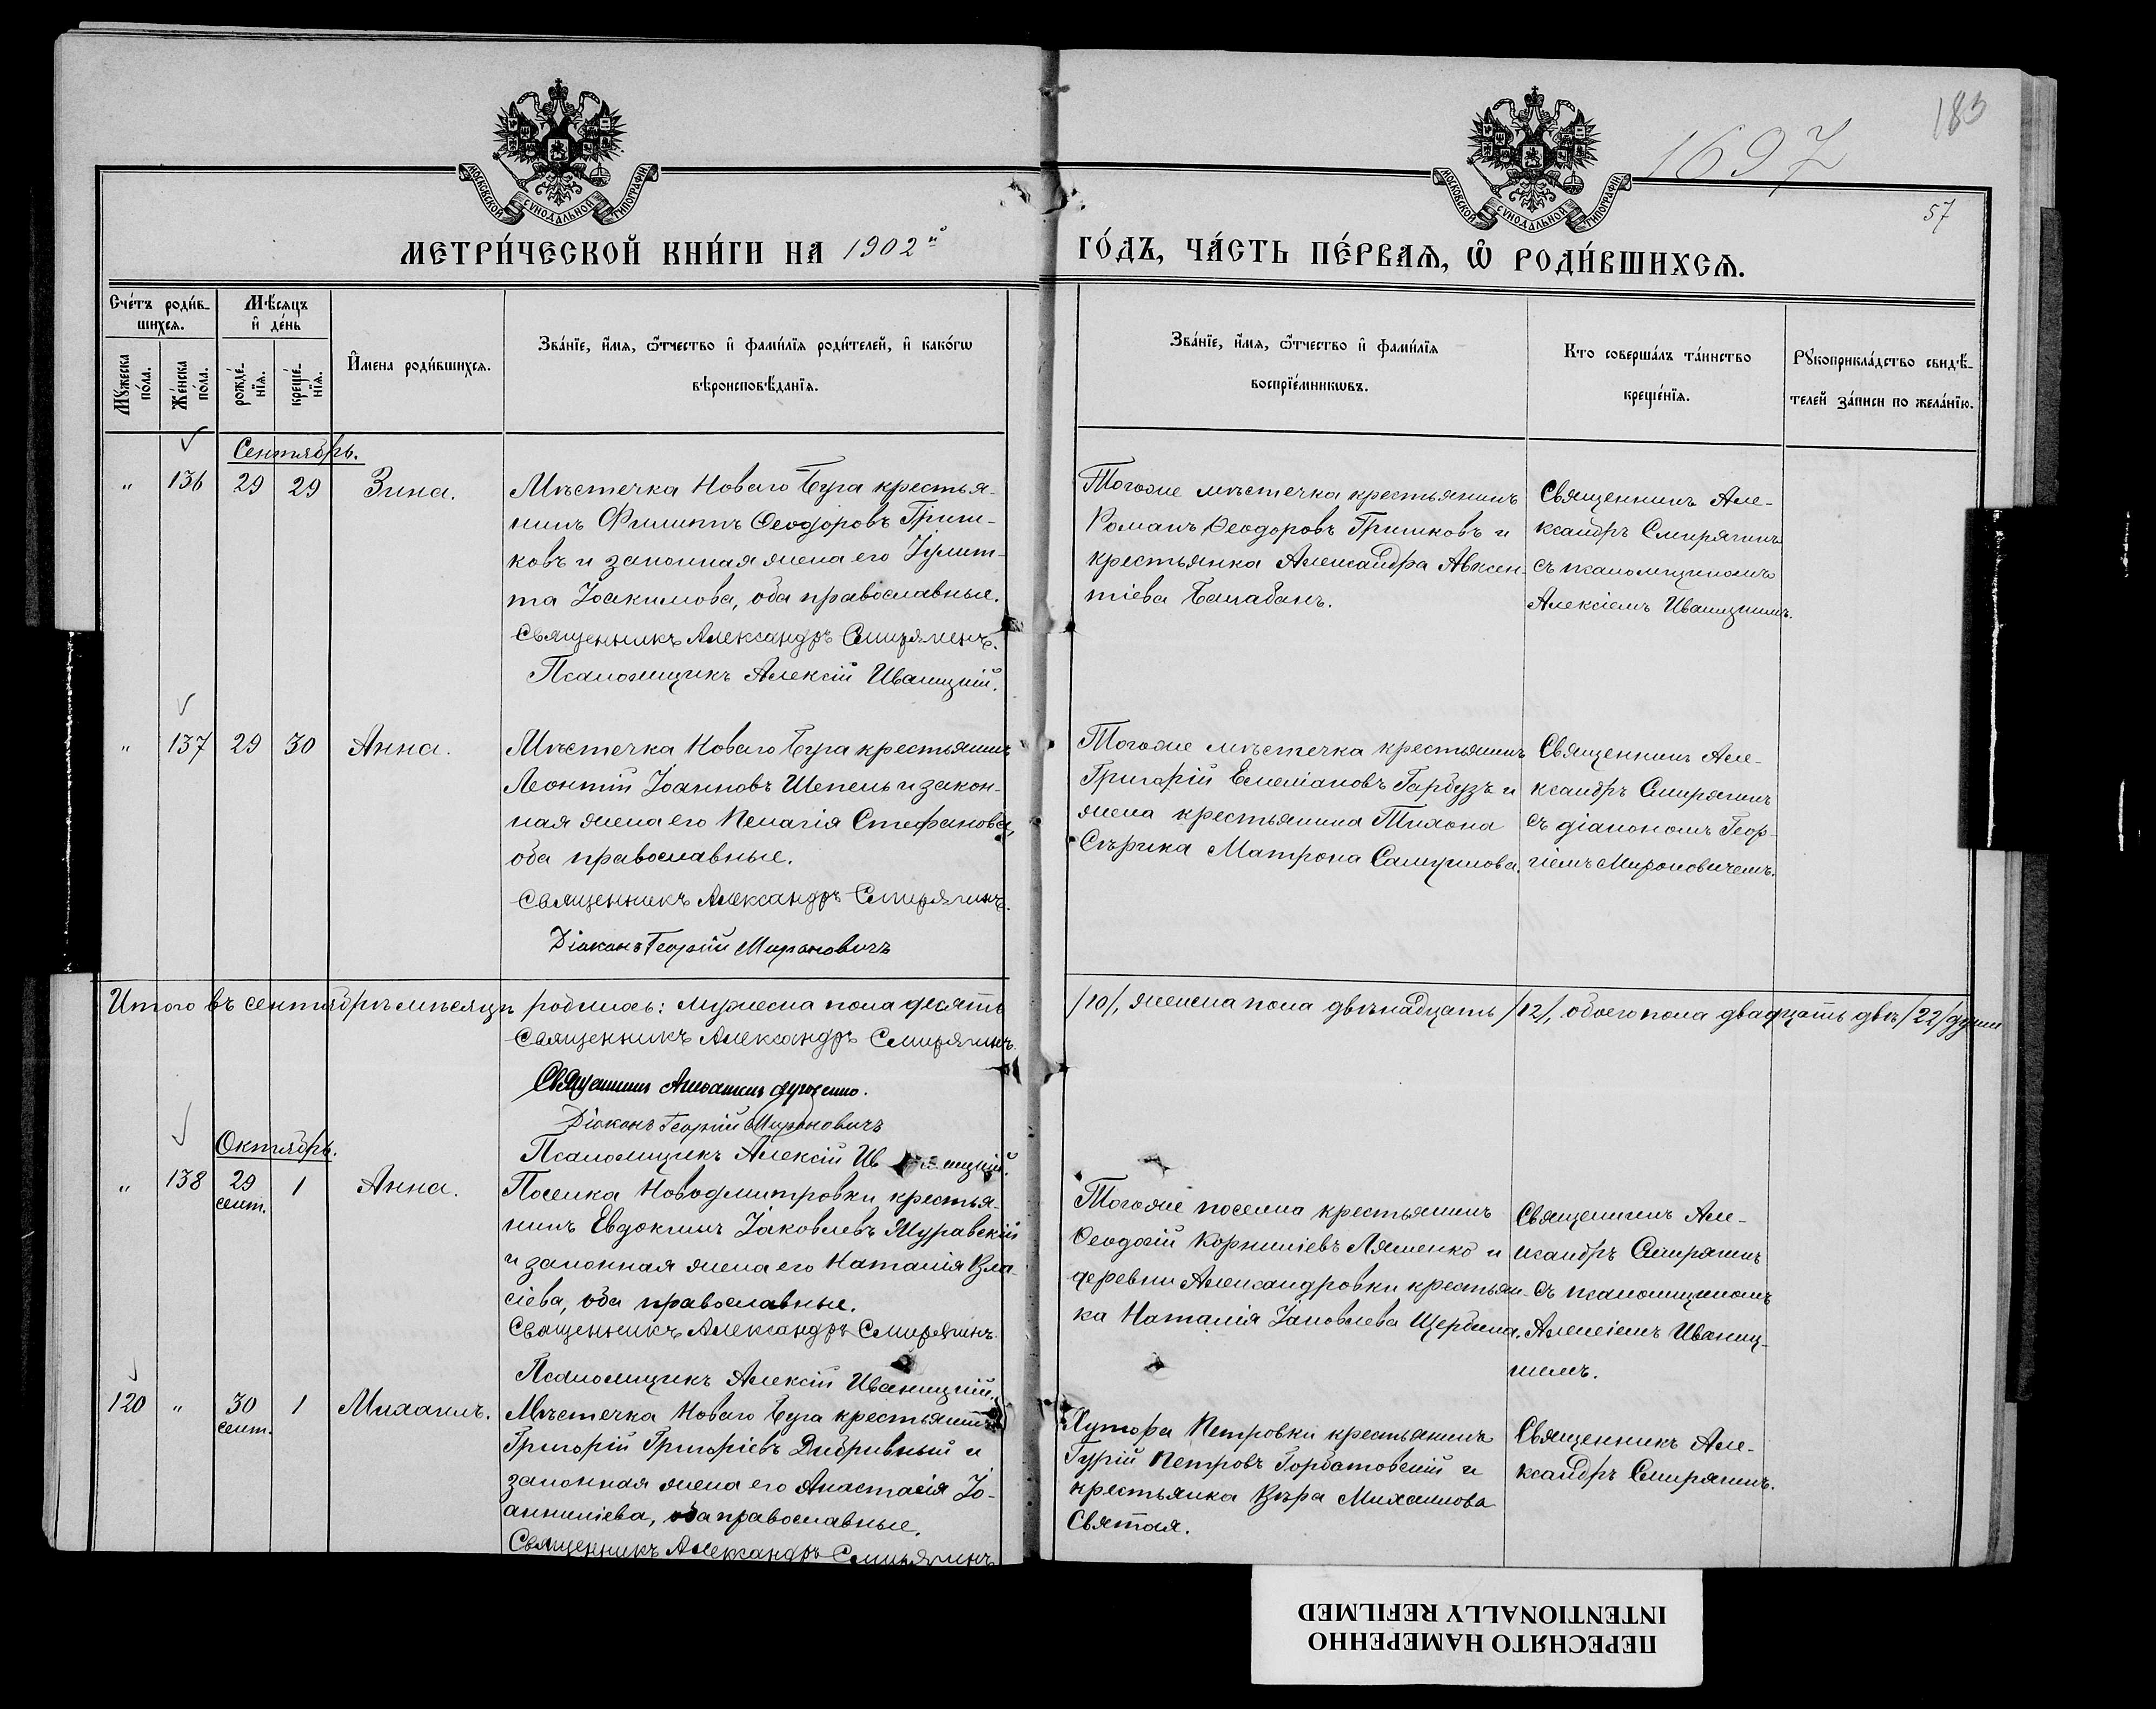 183
1697
57
МОСКОВСКОЙ СѴНОДАЛЬНОЙ ТИПОГРАФІИ
МОСКОВСКОЙ СѴНОДАЛЬНОЙ ТИПОГРАФІИ
МЕТРИ́ЧЕСКОЙ КНИ́ГИ НА 1902й
ГО́ДЪ, ЧА́СТЬ ПЕ́РВАѦ, Ѡ҆ РОДИ́ВШИХСѦ.
Сче́тъ роди́в-
шихсѧ.
Мꙋжеска по́ла.
Же́нска по́ла.
Мѣ́сѧцъ
и҆ де́нь
рожде́-
нїѧ.
креще́-
нїѧ.
И҆мена роди́вшихсѧ.
Зва́нїе, и҆́мѧ, ѻ҆́тчество и҆ фами́лїѧ роди́телей, и҆ како́гѡ
вѣроисповѣ́данїѧ.
Зва́нїе, и҆́мѧ, ѻ҆́тчество и҆ фами́лїѧ
воспрїе́мникѡвъ.
Кто соверша́лъ та́инство
креще́нїѧ.
Рꙋкоприкла́дство свидѣ́-
телей за́писи по жела́нїю.
Сентябрь.
" 136 29 29 Зина.
Мѣстечка Новаго Буга крестья-
нинъ Филиппъ Ѳеодоровъ Гриш-
ковъ и законная жена его Іулит-
та Іоакимова, оба православные.
Священникъ Александръ Смирягинъ.
Псаломщикъ Алексій Иваницкій.
Тогоже мѣстечка крестьянинъ
Романъ Ѳеодоровъ Гришковъ и
крестьянка Александра Авксен-
тіева Балабанъ.
Священникъ Але-
ксандръ Смирягинъ
съ псаломщикомъ
Алексіемъ Иваницкимъ.
" 137 29 30 Анна.
Мѣстечка Новаго Буга крестьянинъ
Леонтій Іоанновъ Шепель и закон-
ная жена его Пелагія Стефанова,
оба православные.
Священникъ Александръ Смирягинъ.
Діаконъ Георгій Мироновичъ
Тогоже мѣстечка крестьянинъ
Григорій Емеліановъ Гарбузъ и
жена крестьянина Тихона
Сѣрика Матрона Самуилова.
Священникъ Але-
ксандръ Смирягинъ
съ діакономъ Геор-
гіемъ Мироновичемъ.
Итого въ сентябрѣ мѣсяцѣ родилось: мужеска пола десять /10/, женска пола двѣнадцать /12/, обоего пола двадцать двѣ /22/ души
Священникъ Александръ Смирягинъ.
Священникъ
Діаконъ Георгій Мироновичъ
Псаломщикъ Алексій Иваницкій.
Октябрь.
" 138 29 сент. 1 Анна.
Поселка Новодмитровки крестья-
нинъ Евдокимъ Іаковлевъ Журавскій
и законная жена его Наталія Вла-
сіева, оба православные.
Священникъ Александръ Смирягинъ.
Псаломщикъ Алексій Иваницкій.
Тогоже поселка крестьянинъ
Ѳеодосій Корниліевъ Ляшенко и
деревни Александровки крестьян-
ка Наталія Іаковлева Щербина.
Священникъ Але-
ксандръ Смирягинъ
съ псаломщикомъ
Алексіемъ Иваниц-
кимъ.
120 " 30 сент. 1 Михаилъ.
Мѣстечка Новаго Буга крестьянинъ
Григорій Григоріевъ Дибривный и
законная жена его Анастасія Іо-
анникіева, оба православные.
Священникъ Александръ Смирягинъ
Хутора Петровки крестьянинъ
Гурій Петровъ Горбатовскій и
крестьянка Вѣра Михаилова
Святая.
Священникъ Але-
ксандръ Смирягинъ.
ПЕРЕСНЯТО НАМЕРЕННО
INTENTIONALLY REFILMED